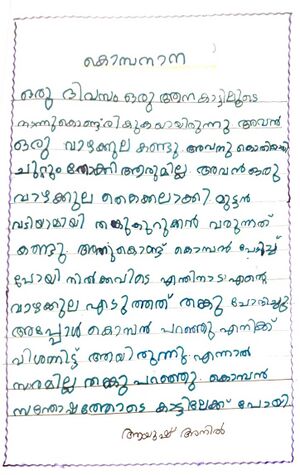 കൊമ്പനാന
ഒരു ദിവസം ഒരു ആന കാട്ടിലൂടെ
നടന്നുകൊണ്ടിരിക്കുകയായിരുന്നു അവൻ
ഒരു വാഴക്കുല കണ്ടു. അവനു കൊതിയായി
ചുറ്റും നോക്കി ആരുമില്ല. അവൻ ഒരു
വാഴക്കുല കൈക്കലാക്കി മുട്ടൻ
വടിയുമായി തങ്കു കുറുക്കൻ വരുന്നത്
കണ്ടു. അതുകൊണ്ട് കൊമ്പൻ പേടിച്ച്
പോയി നിൽക്കവിടെ എന്തിനാടാ എന്റെ
വാഴക്കുല എടുത്തത് തങ്കു ചോദിച്ചു
അപ്പോൾ കൊമ്പൻ പറഞ്ഞു എനിക്ക്
വിശന്നിട്ട് ആയിരുന്നു. എന്നാൽ
സരമില്ല തങ്കു പറഞ്ഞു. കൊമ്പൻ
സന്തോഷത്തോടെ കാട്ടിലേക്ക് പോയി
ആയുഷ് അനിൽ